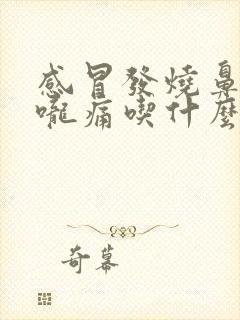 感冒發燒鼻
嚨痛喫什麼
奇幕